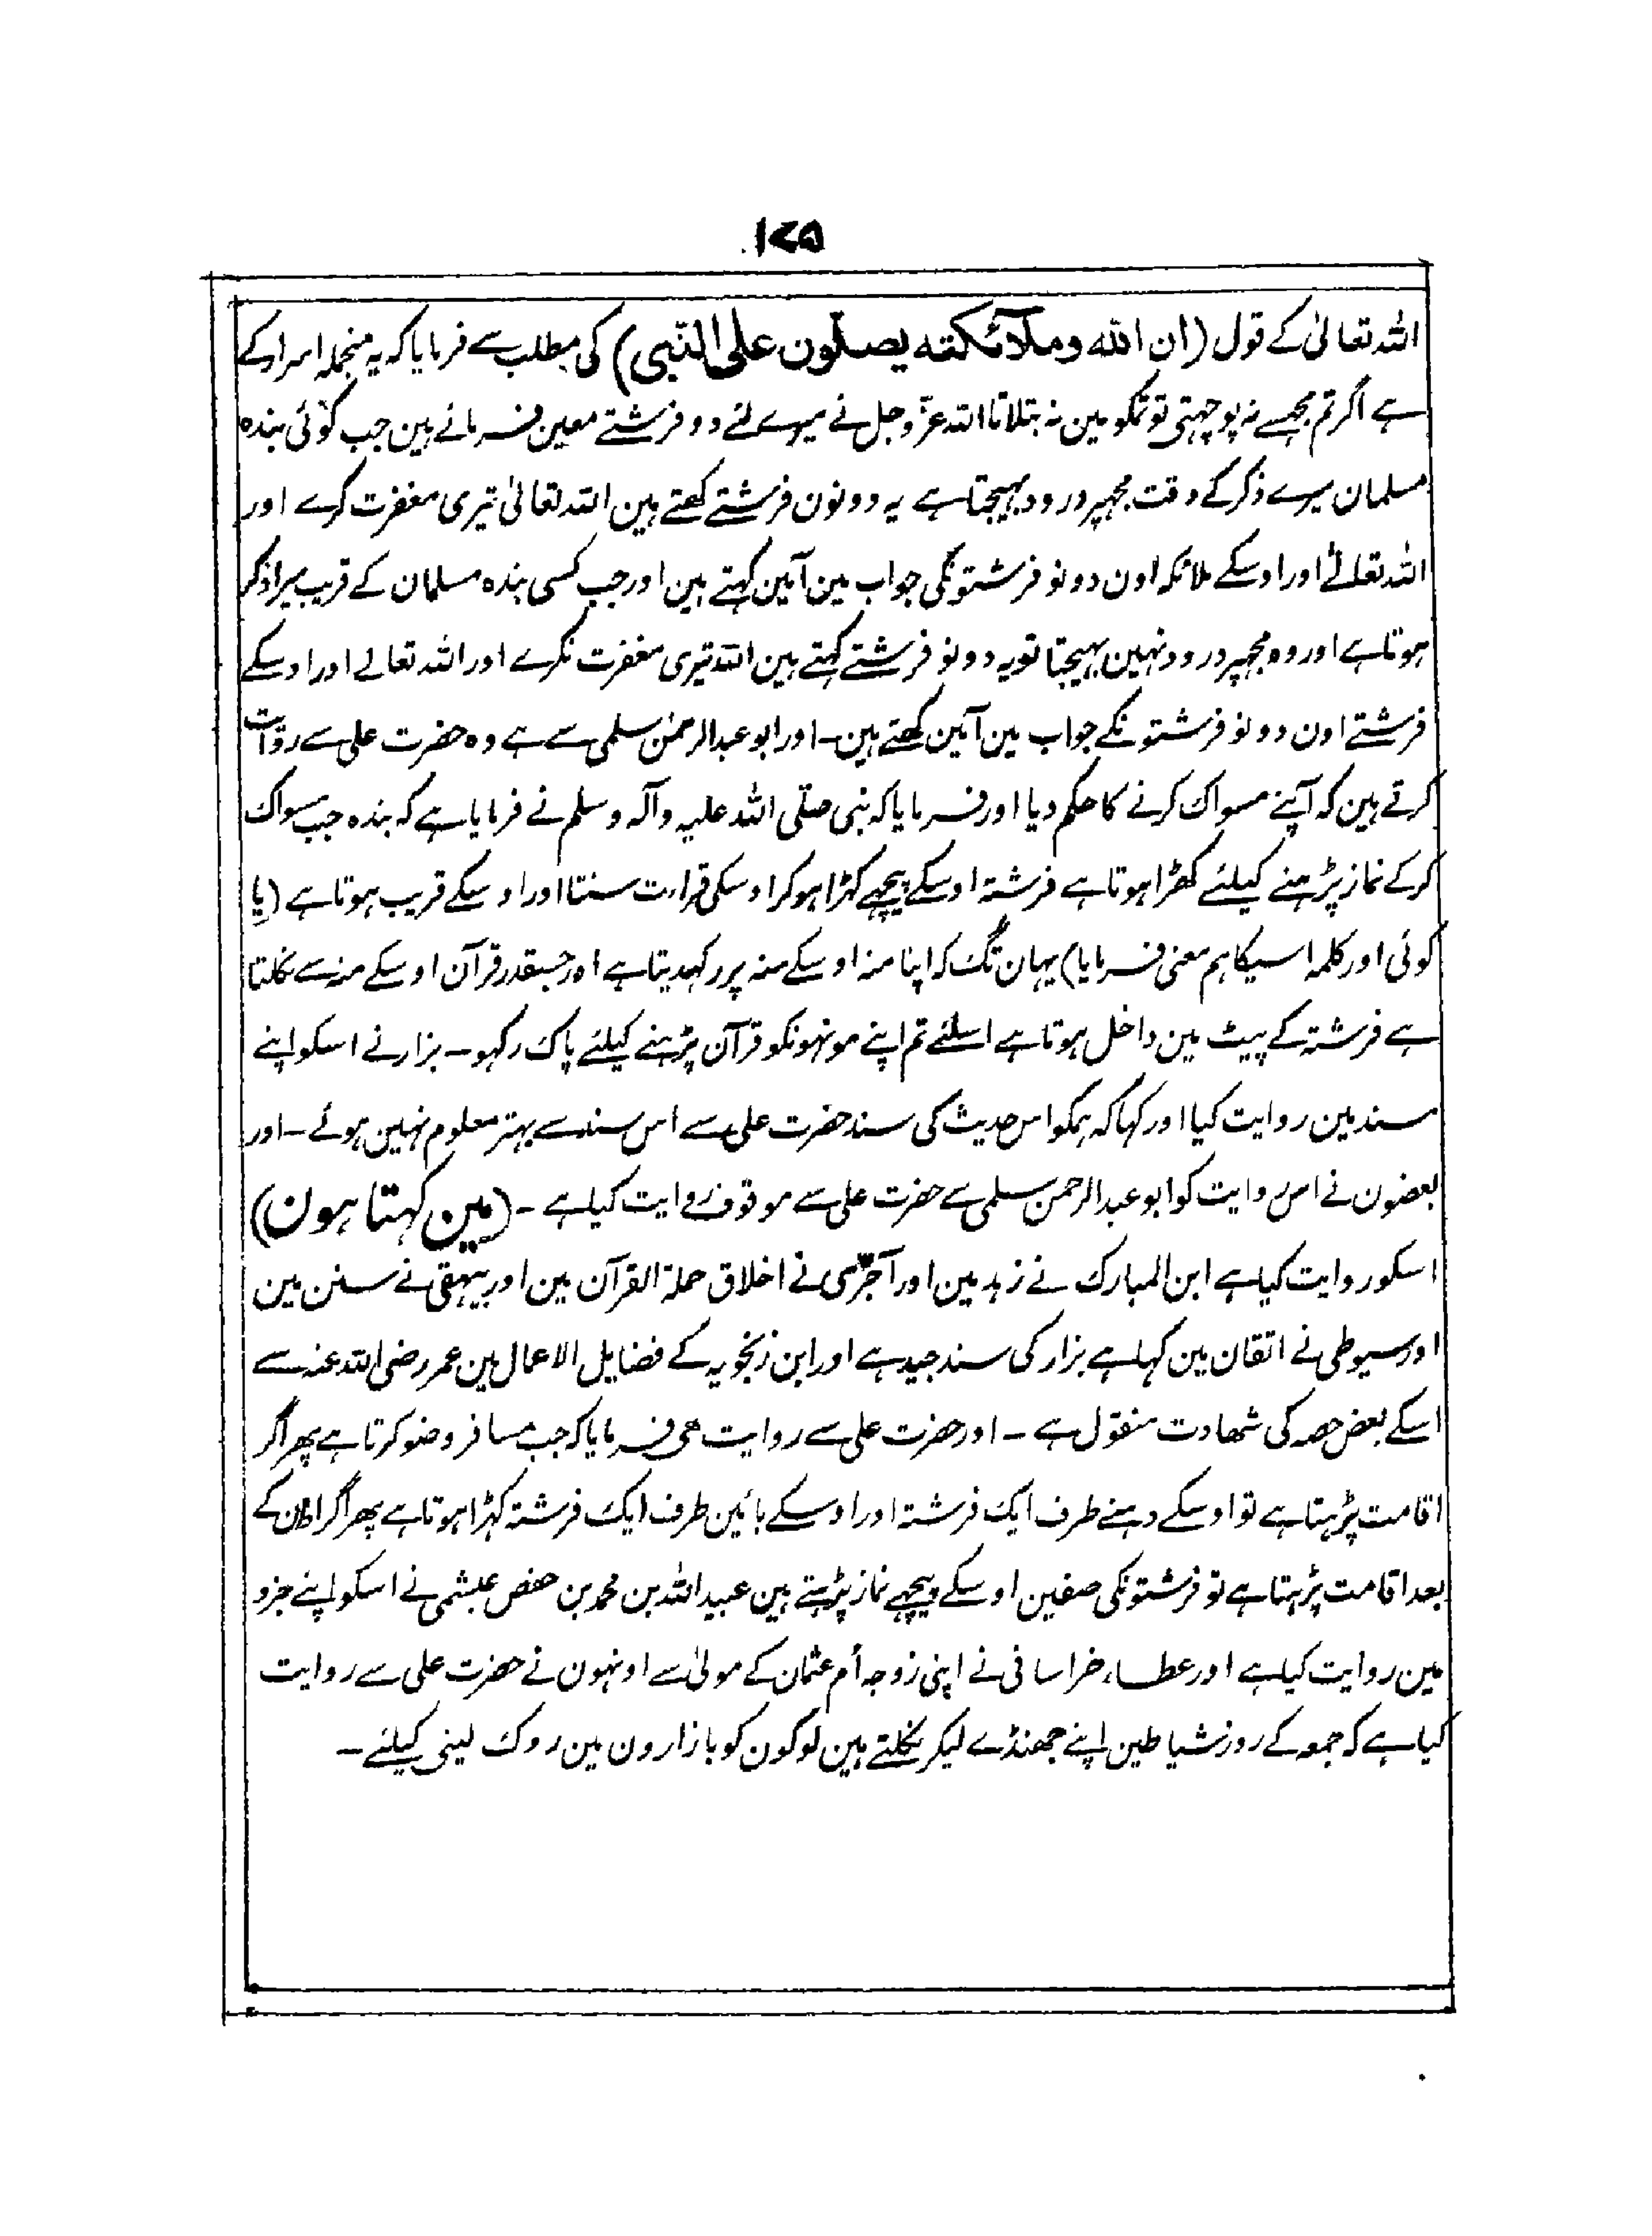 ۱۷۵
اللہ تعالیٰ کے قول (ان اللہ وملآئکتہ یصلّون علی النّبی) کی مطلب سے فرمایا کہ یہ منجملہ اسرار کے
ہے اگر تم مجھسے نہ پوچہتی تو تمکو مین نہ بتلاتا اللہ عزّ وجل نے میرے لئے دو فرشتے معین فرمائے ہین جب کوئی بندہ
مسلمان میرے ذکر کے وقت مجہپر درود بہیجتا ہے یہ دونون فرشتے کھتے ہین اللہ تعالیٰ تیری مغفرت کرے اور
اللہ تعالےٰ اور اوسکے ملائکہ اون دونو فرشتونکی جواب مین آمین کہتے ہین اور جب کسی بندہ مسلمان کے قریب میرا ذکر
ہوتا ہے اور وہ مجہپر درود نہین بہیجتا تو یہ دونو فرشتے کہتے ہین اللہ تیری مغفرت نکرے اور اللہ تعالے اور اوسکے
فرشتے اون دونو فرشتونکے جواب مین آمین کھتے ہین ۔ اور ابو عبدالرحمٰن سلمی سے ہے وہ حضرت علی سے روایت
کرتے ہین کہ آپنے مسواک کرنے کا حکم دیا اور فرمایا کہ نبی صلّی اللہ علیہ وآلہ وسلم نے فرمایا ہے کہ بندہ جب مسواک
کرکے نماز پڑہنے کیلئے کھڑا ہوتا ہے فرشتہ اوسکے پیچہے کہڑا ہوکر اوسکی قرارت سنتا اور اوسکے قریب ہوتا ہے (یا
کوئی اور کلمہ اسیکا ہم معنی فرمایا) یہان تک کہ اپنا منہ اوسکے منہ پر رکہدیتا ہے اور جسقدر قرآن اوسکے منہ سے نکلتا
ہے فرشتہ کے پیٹ مین داخل ہوتا ہے اسلئے تم اپنے مونہونکو قرآن پڑہنے کیلئے پاک رکہو ۔ بزار نے اسکو اپنے
سند مین روایت کیا اور کہا کہ ہمکو اس حدیث کی سند حضرت علی سے اس سند سے بہتر معلوم نہین ہوئے ۔ اور
بعضون نے اس روایت کو ابو عبدالرحمن سلمی سے حضرت علی سے موقوف روایت کیا ہے ۔ (مین کہتا ہون)
اسکو روایت کیا ہے ابن المبارک نے زہد مین اور آجرّی نے اخلاق حملۃ القرآن مین اور بیہقی نے سنن مین
اور سیوطی نے اتقان مین کہا ہے بزار کی سند جید ہے اور ابن زنجویہ کے فضایل الاعمال مین عمر رضی اللہ عنہ سے
اسکے بعض حصہ کی شھادت منقول ہے ۔ اور حضرت علی سے روایت ھی فرمایا کہ جب مسافر وضو کرتا ہے پھر اگر
اقامت پڑہتا ہے تو اوسکے دہنے طرف ایک فرشتہ اور اوسکے بائین طرف ایک فرشتہ کہڑا ہوتا ہے پھر اگر اذان کے
بعد اقامت پڑہتا ہے تو فرشتونکی صفین اوسکے پیچہے نماز پڑہتے ہین عبید اللہ بن محمد بن حفص عبشمی نے اسکو اپنے جزو
مین روایت کیا ہے اور عطاء خراسانی نے اپنی زوجہ أم عثمان کے مولیٰ سے اونہون نے حضرت علی سے روایت
کیا ہے کہ جمعہ کے روز شیاطین اپنے جھنڈے لیکر نکلتے ہین لوگون کو بازارون مین روک لینی کیلئے ۔